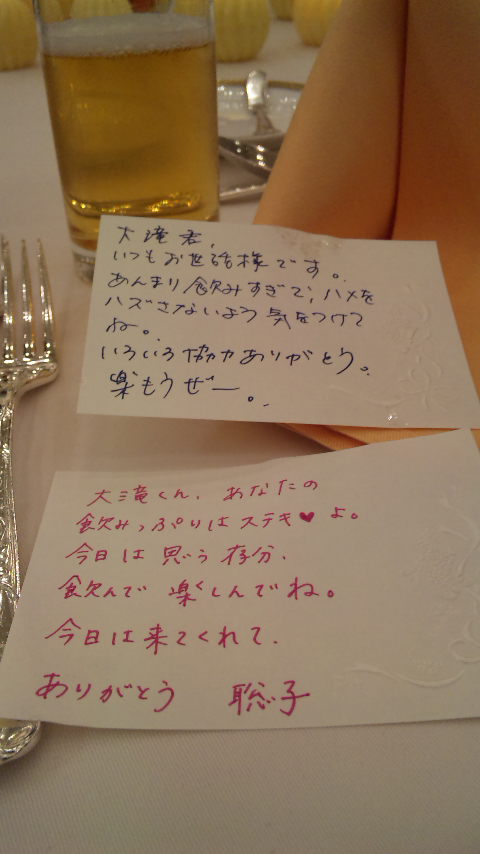 大滝君、
いつもお世話様です。
あんまり飲みすぎて、ハメを
ハズさないよう気をつけて
ね。
いろいろ協力ありがとう。
楽もうぜー。
大滝くん、あなたの
飲みっぷりはステキ♥よ。
今日は思う存分、
飲んで楽しんでね。
今日は来てくれて、
ありがとう 聡子